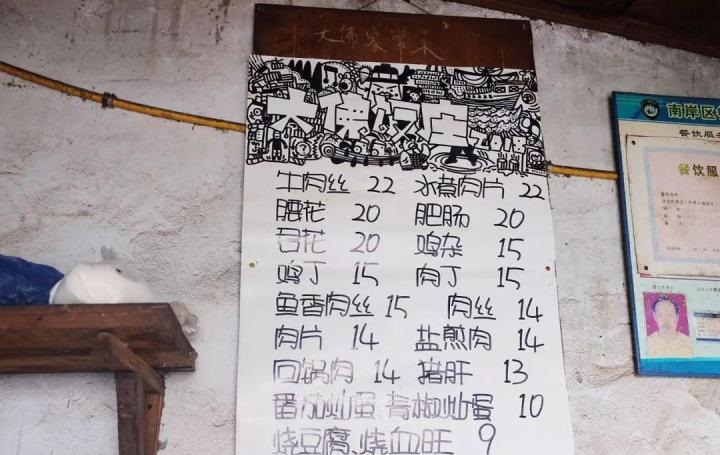 大佛家常菜
大佛饭庄
2018
牛肉丝 22 水煮肉片 22
腰花 20 肥肠 20
舌花 20 鸡杂 15
鸡丁 15 肉丁 15
鱼香肉丝 15 肉丝 14
肉片 14 盐煎肉 14
回锅肉 14 猪肝 13
番茄炒蛋、青椒炒蛋 10
烧豆腐、烧血旺 9
南岸区
餐饮服务
餐饮服